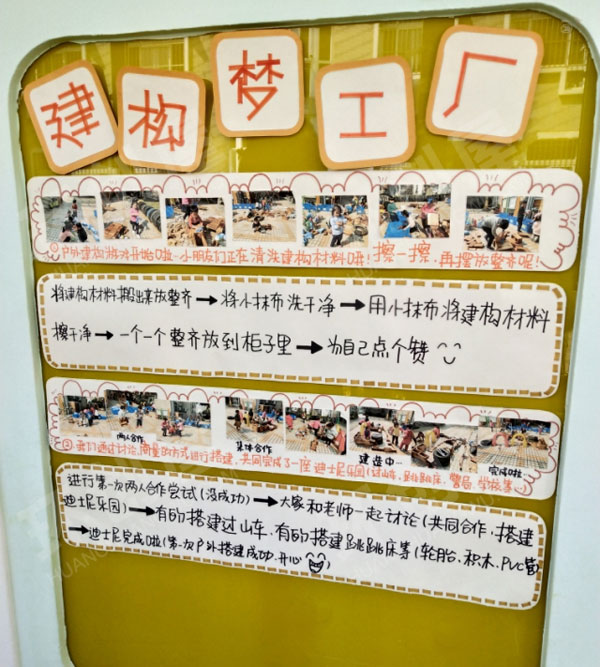 建构梦工厂
①户外建构游戏开始啦~小朋友们正在清洗建构材料哦!擦一擦,再摆放整齐呢!
将建构材料搬出来放整齐→将小抹布洗干净→用小抹布将建构材料
擦干净→一个一个整齐放到柜子里→为自己点个赞
两人合作
集体合作
建造中…
完成啦…
②我们通过讨论,商量的方式进行搭建,共同完成了一座迪士尼乐园(过山车、跳跳床、警局、学校等…)
进行第一次两人合作尝试(没成功)→大家和老师一起讨论(共同合作,搭建
迪士尼乐园)→有的搭建过山车,有的搭建跳跳床等(轮胎、积木、PVC管)
→迪士尼完成啦(第一次户外搭建成功,开心)